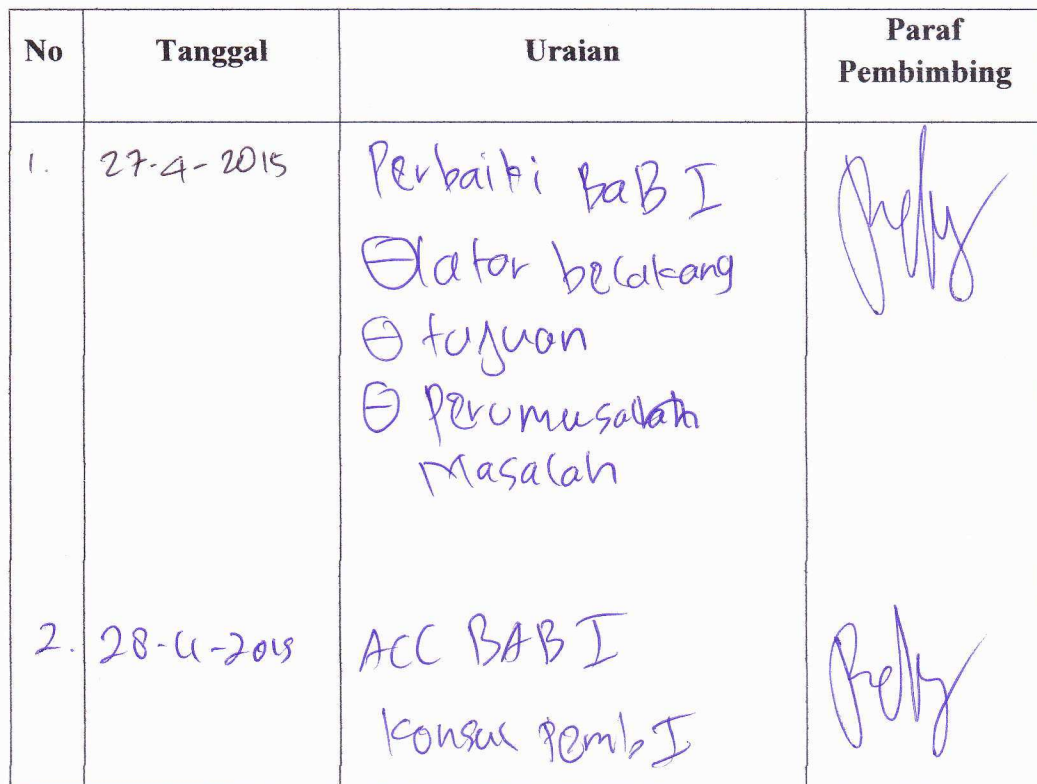 No Tanggal Uraian Paraf Pembimbing
1. 27-4-2015 Perbaiki BaB I
⊖ lator belakang
⊖ tujuan
⊖ Perumusalah
Masalah
2. 28-4-2015 ACC BAB I
Konsul Pemb I